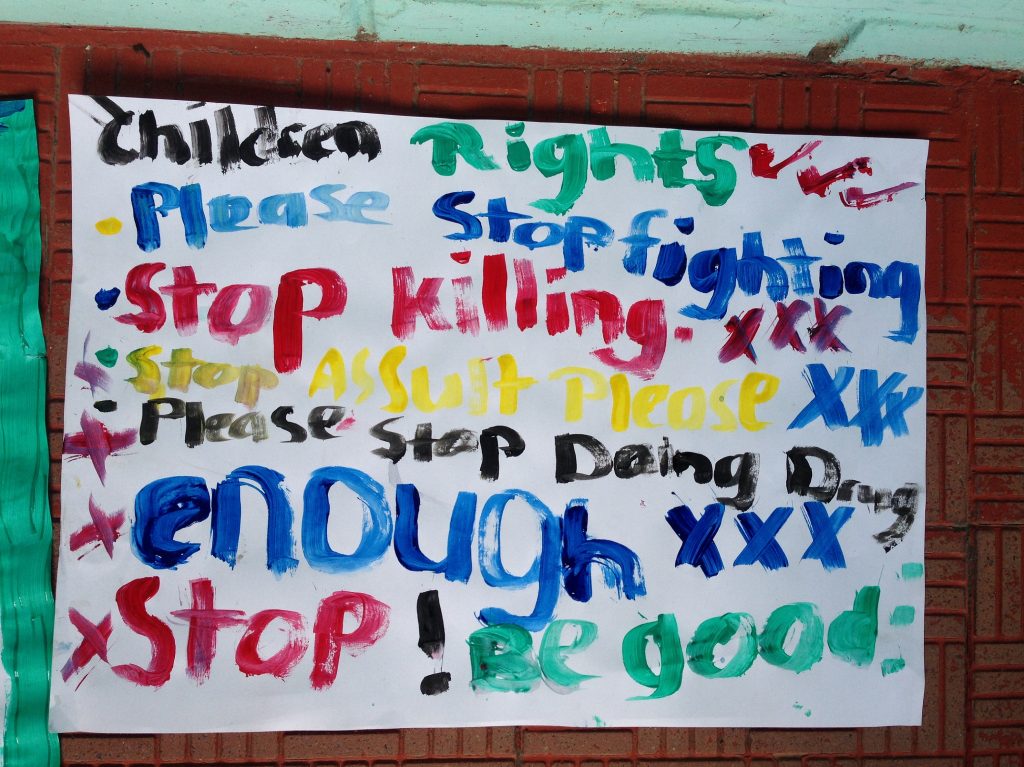 Children Rights
Please Stop fighting
Stop killing. xxx
Stop Assult Please xxx
Please Stop Doing Drug
enough xxx
Stop! Be good!